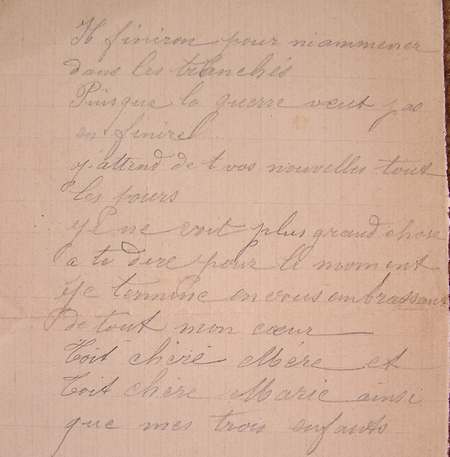 Il finiron pour m'ammener
dans les tranchés
Puisque la guerre veut pas
en finire
j'attend de t vos nouvelles tout
les jours
je ne voit plus grand chose
a te dire pour le moment
je termine en vous embrassant
de tout mon cœur
toit chère Mère et
toit chere Marie ainsi
que mes trois enfants